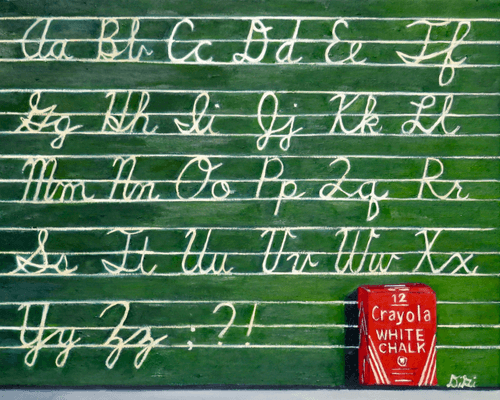 Aa Bb Cc Dd Ee Ff
Gg Hh Ii Jj Kk Ll
Mm Nn Oo Pp Qq Rr
Ss Tt Uu Vv Ww Xx
Yy Zz ; ? !
12
Crayola
WHITE
CHALK